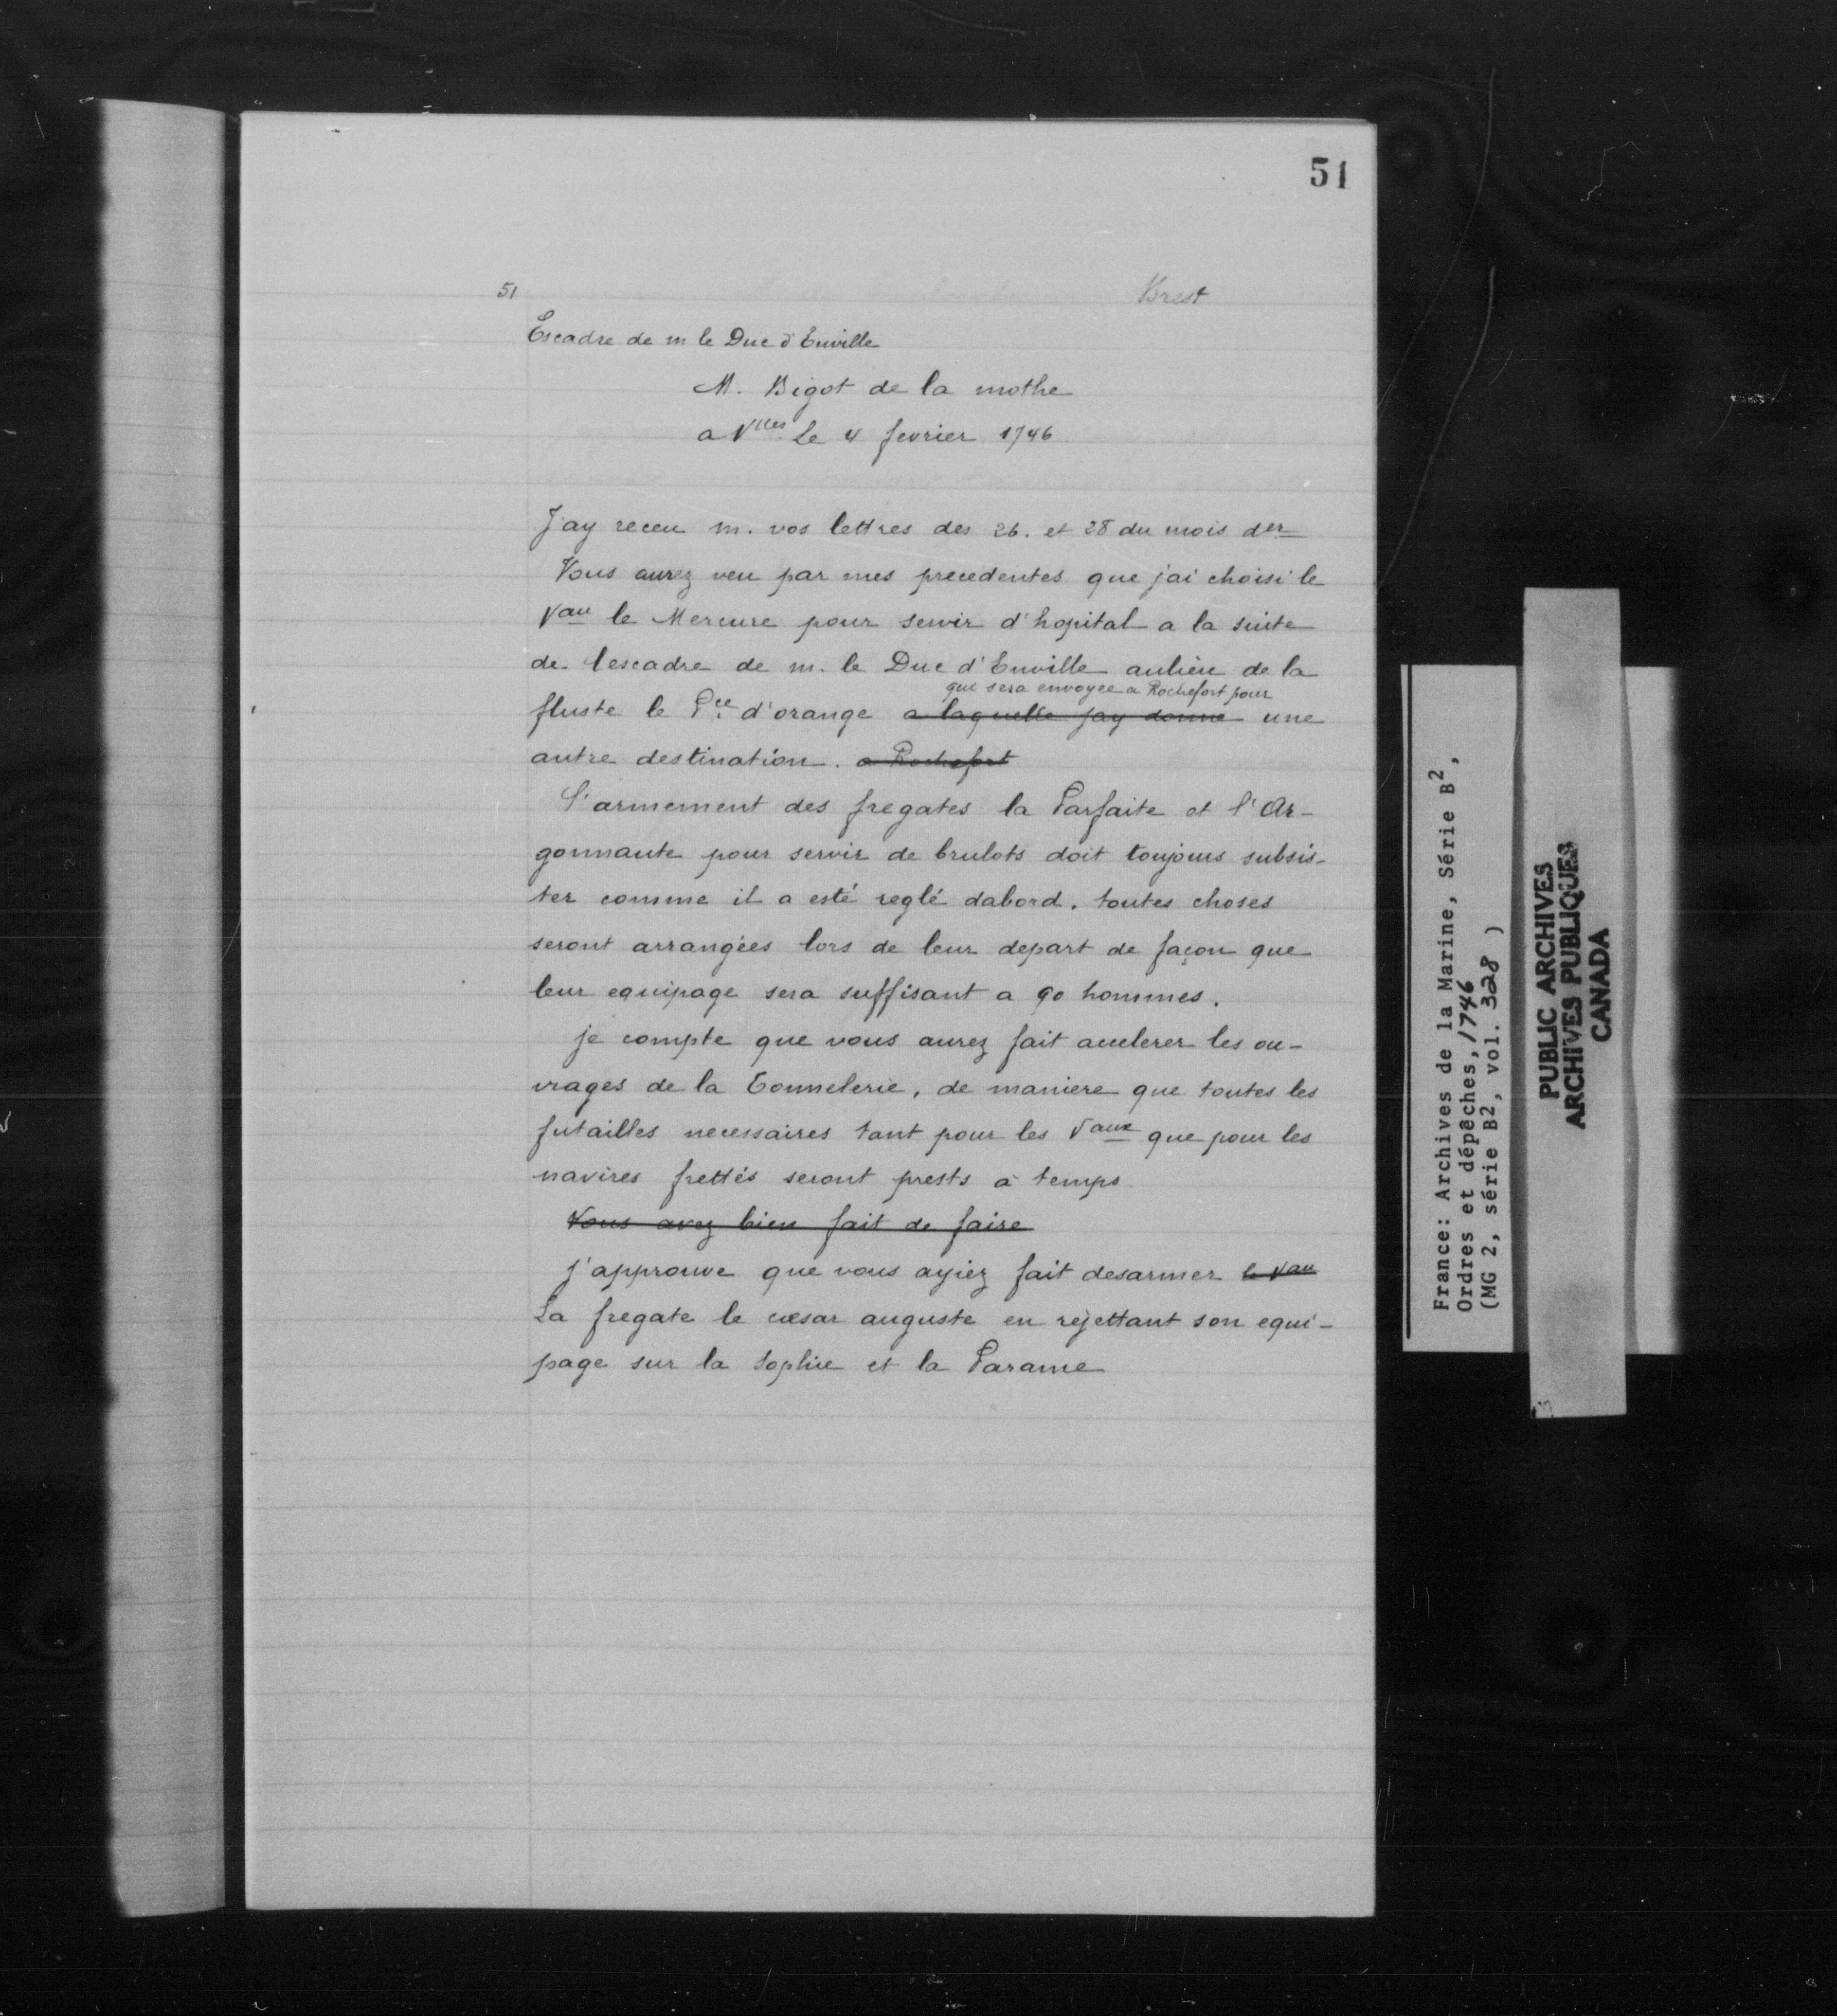 51
51
Brest
Escadre de m le Duc d'Enville
M. Bigot de la mothe
a Vlles Le 4 fevrier 1746.
J'ay receu m. vos lettres des 26. et 28 du mois der
Vous aurez veu par mes precedentes que j'ai choisi le
Vau le Mercure pour servir d'hopital a la suite
de lescadre de m. le Duc d'Enville aulieu de la
qui sera envoyee a Rochefort pour
fluste le Pce d'orange a laquelle jay donné une
autre destination. a Rochefort
L'armement des fregates la Parfaite et l'Ar-
gonnaute pour servir de brulots doit toujours subsis-
ter comme il a esté reglé dabord. toutes choses
seront arrangées lors de leur depart de façon que
leur equipage sera suffisant a 90 hommes.
je compte que vous aurez fait accelerer les ou-
vrages de la Tonnelerie, de maniere que toutes les
futailles necessaires tant pour les Vaux que pour les
navires frettés seront prests à temps
Vous avez bien fait de faire
j'approuve que vous ayiez fait desarmer le Vau
La fregate le cesar auguste en rejettant son equi-
page sur la Sophie et la Parame
France: Archives de la Marine, Série B2,
Ordres et dépêches, 1746
(MG 2, série B2, vol. 328 )
PUBLIC ARCHIVES
ARCHIVES PUBLIQUES
CANADA